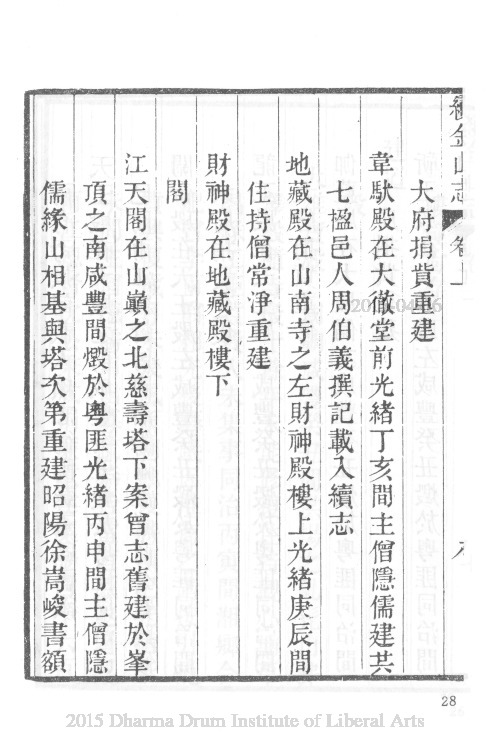 續金山志 卷上
大府捐貲重建
韋馱殿在大徹堂前光緒丁亥間主僧隱儒建共
七楹邑人周伯義撰記載入續志
地藏殿在山南寺之左財神殿樓上光緒庚辰間
住持僧常淨重建
財神殿在地藏殿樓下
閣
江天閣在山巔之北慈壽塔下案曾志舊建於峯
頂之南咸豐間燬於粵匪光緒丙申間主僧隱
儒緣山相基與塔次第重建昭陽徐嵩峻書額
28
2015 Dharma Drum Institute of Liberal Arts